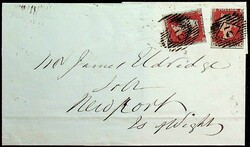 Mr James Eldridge
Solr
Newport
Is of Wight